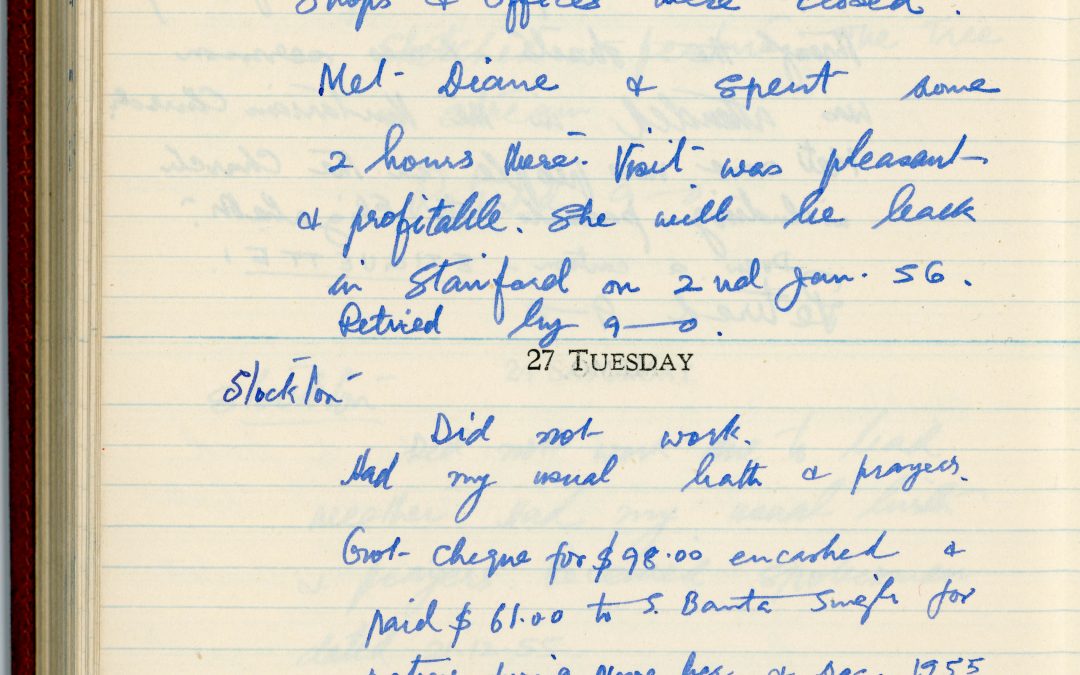 Shops & offices were closed.
Met Diane & spent some
2 hours there. Visit was pleasant
& profitable. She will be back
in Stanford on 2nd Jan. 56.
Retried by 9—0.
27 TUESDAY
Stockton
Did not work.
Had my usual bath & prayers.
Got cheque for $98.00 encashed &
paid $61.00 to S. Banta Singh for
& Dec. 1955